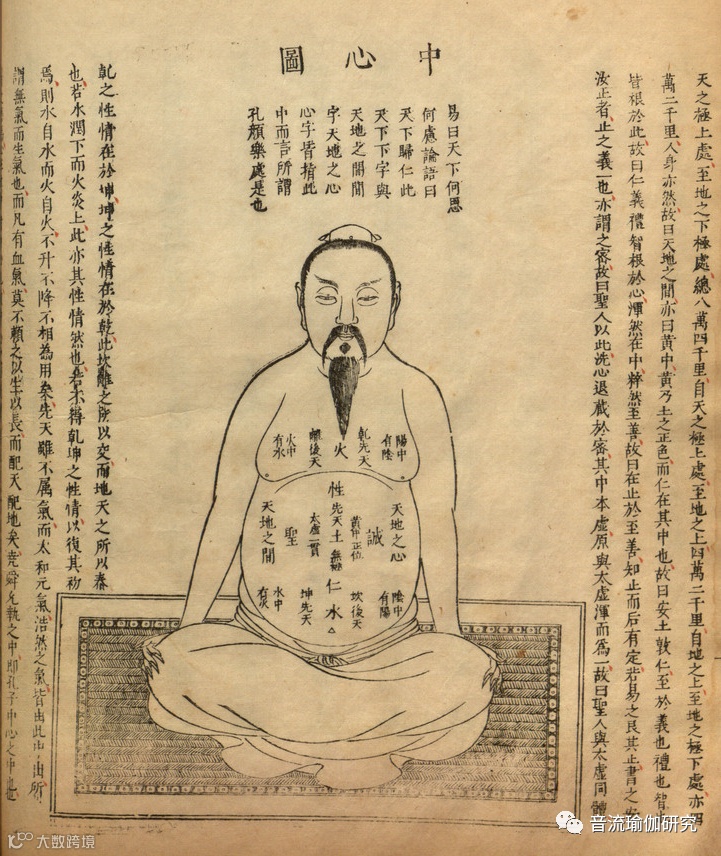 中心圖
天之極上處至地之下極處總八萬四千里自天之極上處至地之上四萬二千里自地之上至地之極下處亦四
萬二千里人身亦然故曰天地之間亦曰黃中黃乃土之正色而仁在其中也故曰安土敦仁至於義也禮也智
皆根於此故曰仁義禮智根於心渾然在中粹然至善故曰在止於至善知止而后有定若易之艮其止書之安
汝止者止之義一也亦謂之密故曰聖人以此洗心退藏於密其中本虛原與太虛渾而為一故曰聖人與太虛同體
易曰天下何思
何慮論語曰
天下歸仁此
天下下字與
天地之間間
字天地之心
心字皆指此
中而言所謂
孔顏樂處是也
乾之性情在於坤坤之性情在於乾此坎離之所以交而地天之所以泰
也若水潤下而火炎上此亦其性情然也若不得乾坤之性情以復其初
焉則水自水而火自火不升不降不相為用矣先天雖不属氣而太和元氣浩然之氣皆由此中出所
謂無氣而生氣也而凡有血氣莫不賴之以生以長而配天配地矣堯舜允執之中即孔子中心之中也
陽中有陰
乾先天
火
離後天
火中有水
天地之心
誠
黃中正位
性
先天土無極
太虛一貫
聖
天地之間
仁
陰中有陽
坎後天
水
坤先天
水中有火
音流瑜伽研究
大数跨境